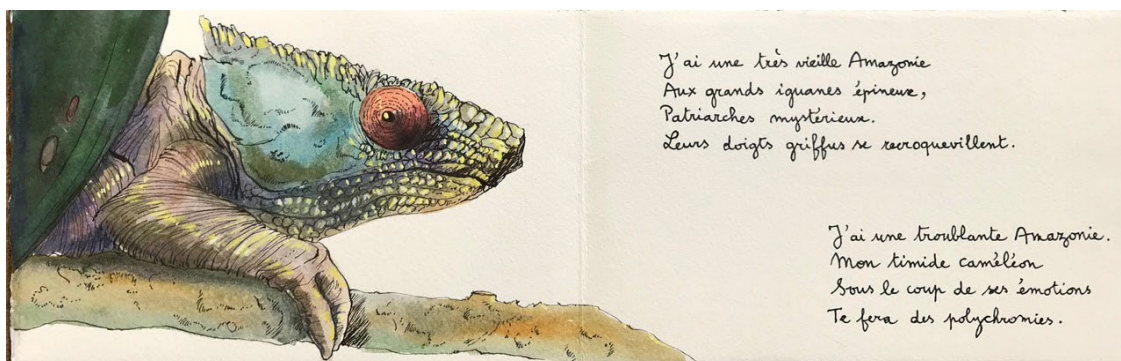 J'ai une très vieille Amazonie
Aux grands iguanes épineux,
Patriarches mystérieux.
Leurs doigts griffus se recroquevillent.
J'ai une troublante Amazonie.
Mon timide caméléon
Sous le coup de ses émotions
Te fera des polychromies.